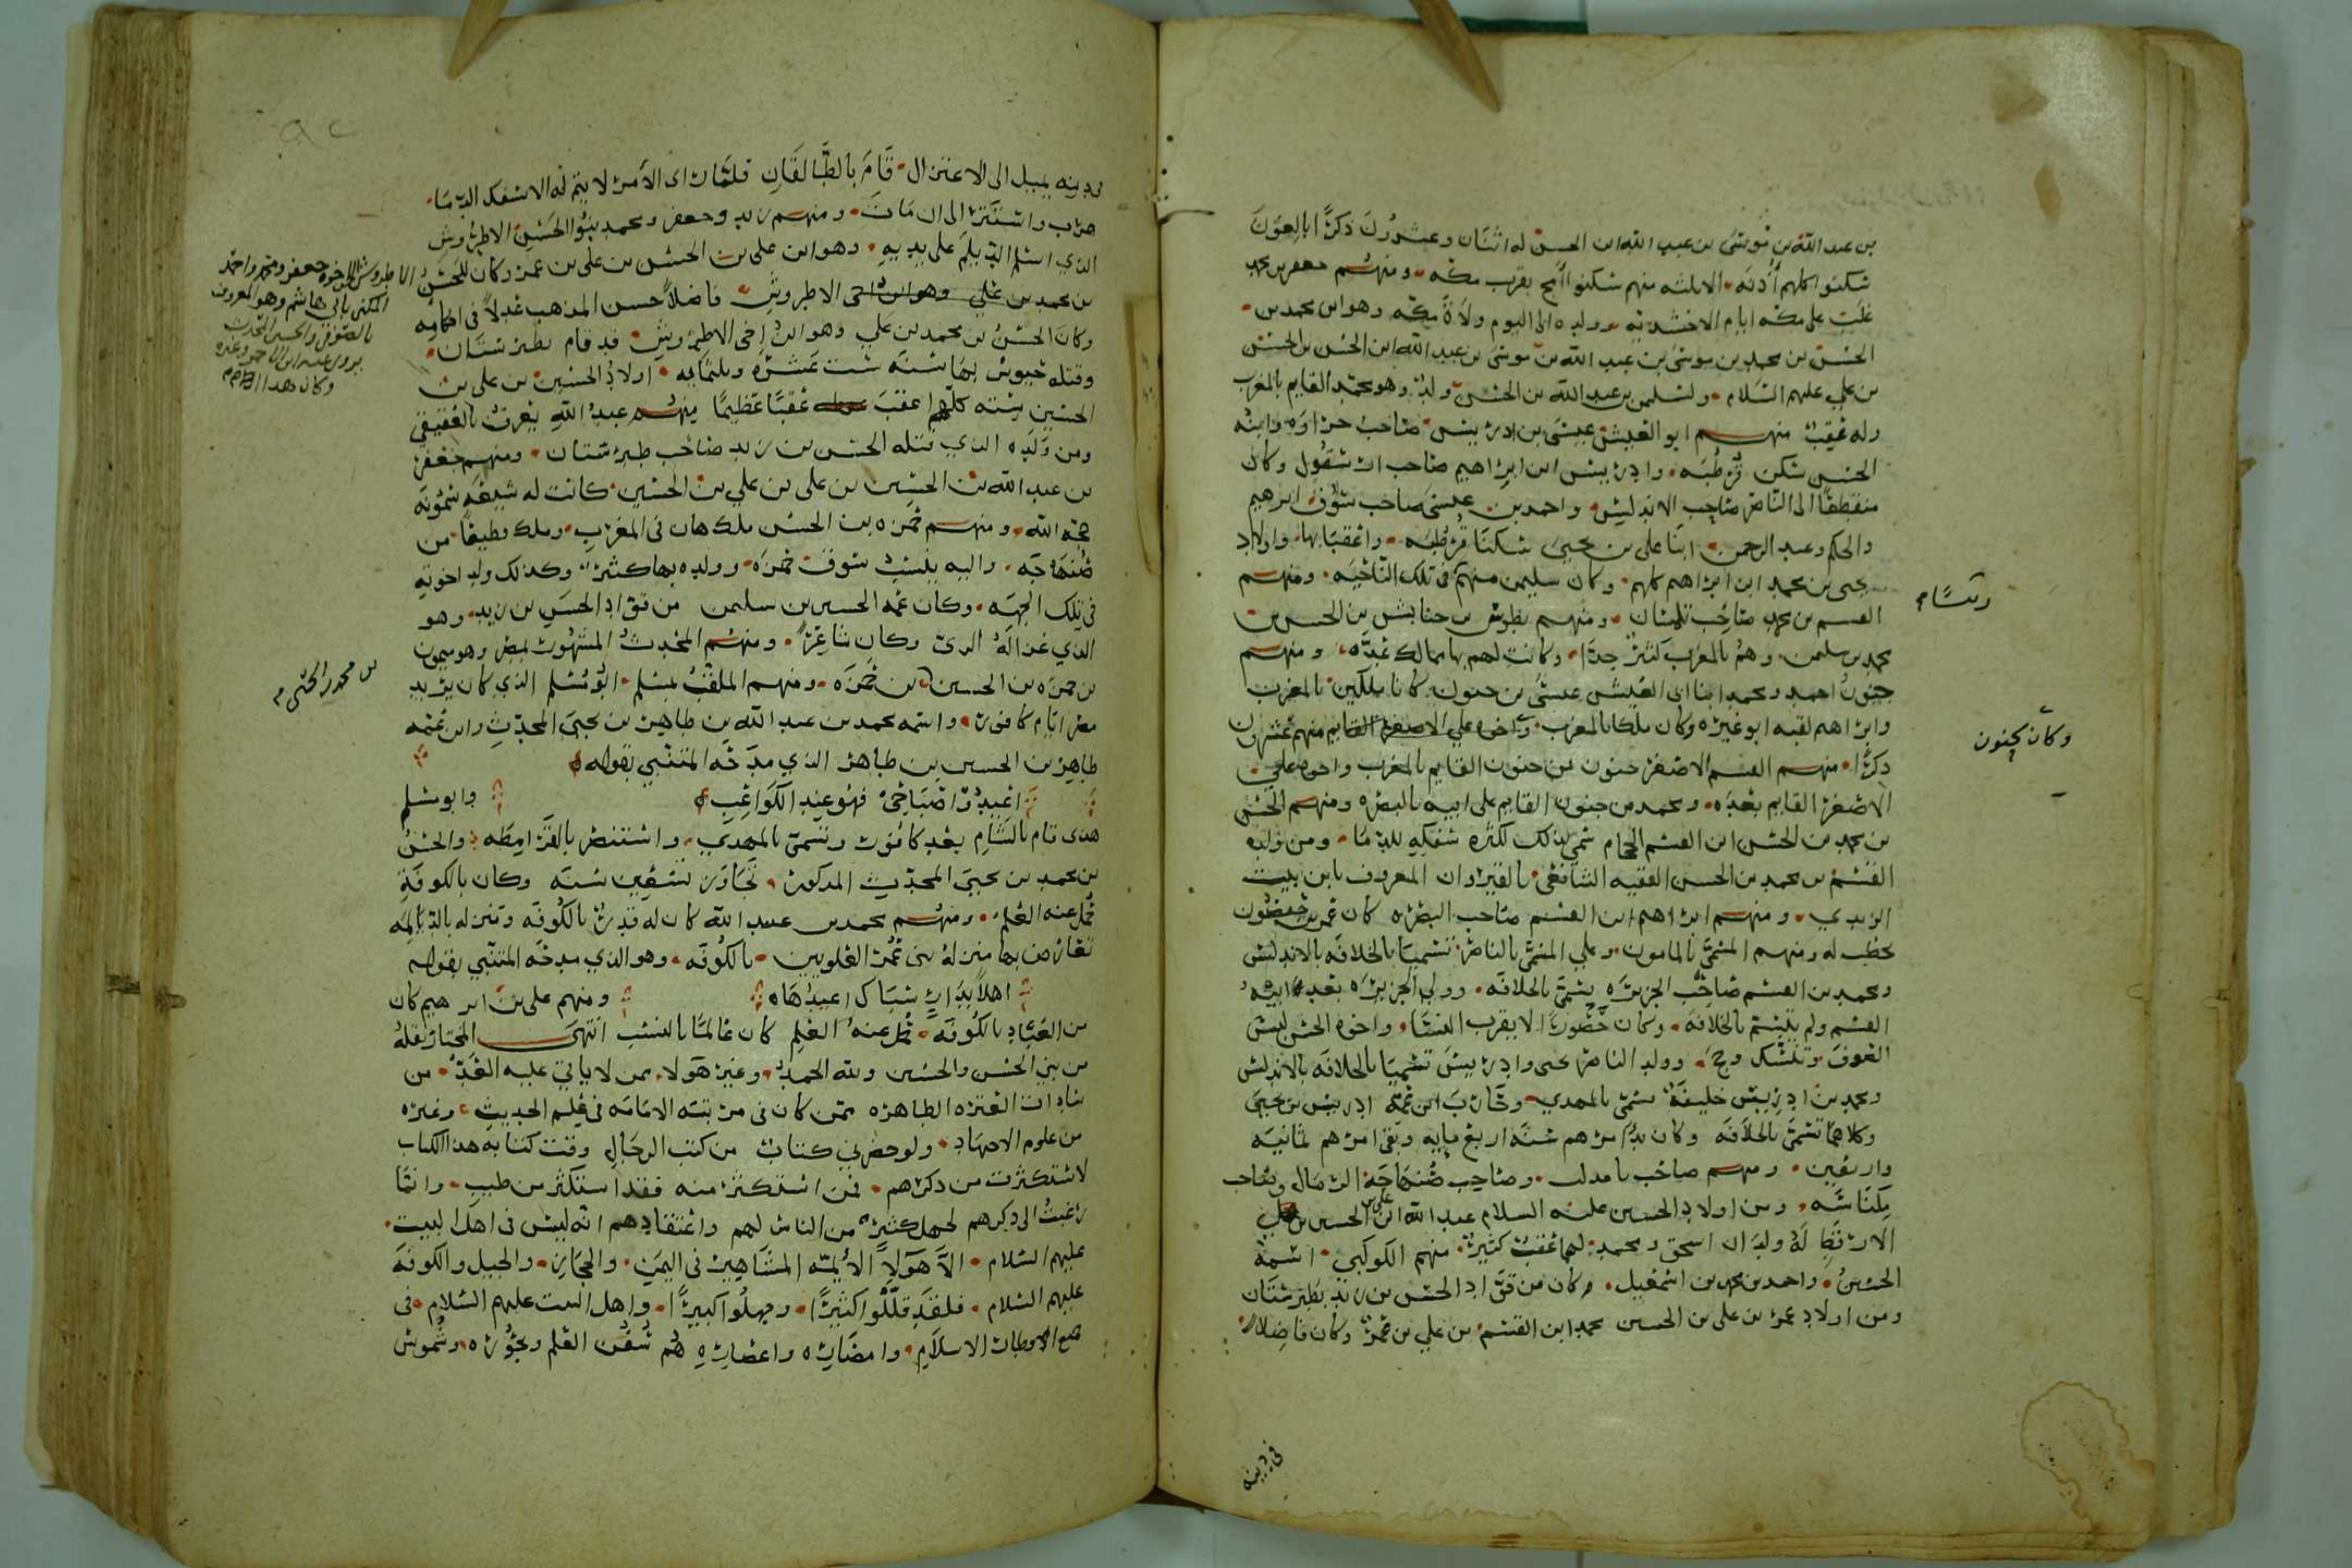 بن عبد الله بن موسى بن عبد الله ابن الحسن له اثنان وعشرون ذكرًا بالعون
سكنوا كلهم أذنه الا ثلثه منهم سكنوا أمج بقرب مكه ومنهم جعفر بن محمد
غلب على مكه ايام الاخشيديه وولده الى اليوم ولاة مكه وهو ابن محمد بن
الحسن بن محمد بن موسى بن عبد الله بن موسى بن عبد الله ابن الحسن بن الحسن
بن علي عليهم السلام ولسليمن بن عبد الله بن الحسن ولد وهو محمد القايم بالمغرب
وله عقب منهم ابو العيش عيسى بن ادريس صاحب جراوه وابنه
الحسن سكن قرطبه وادريس ابن ابراهيم صاحب ارشقول وكان
منقطعًا الى الناصر صاحب الاندلس واحمد بن عيسى صاحب سوق ابرهيم
والحكم وعبد الرحمن ابنا علي بن يحيى سكنا قرطبه واعقبا بها واولاد
يحيى بن محمد ابن ابراهيم كلهم وكان سليمن منهم في تلك الناحيه ومنهم
القسم بن محمد صاحب تلمسان ومنهم بطوش بن حناتش بن الحسن بن
محمد بن سليمن وهم بالمغرب كثير جدًا وكانت لهم بها ممالك عده ومنهم
جنون احمد ومحمد ابنا ابي العيش عيسى بن جنون كانا ملكين بالمغرب
وابراهيم لقبه ابو غبره وكان ملكا بالمغرب واخوه علي الاصغر القايم منهم عشرون
ذكرًا منهم القسم الاصغر جنون بن جنون القايم بالمغرب واخوه علي
الاصغر القايم بعده ومحمد بن جنون القايم على ابيه بالبصره ومنهم الحسن
بن محمد بن الحسن ابن القسم الحجام سمي بذلك لكثره سفكه للدما ومن ولده
القسم بن محمد بن الحسن الفقيه الشافعي بالقيروان المعروف بابن بيت
الزيدي ومنهم ابراهيم ابن القسم صاحب البصره كان عمر بن حفصون
يخطب له ومنهم المسمى بالمامون وعلي المسمى بالناصر تسميا بالخلافه بالاندلس
ومحمد بن القسم صاحب الجزيره يسمى بالخلافه وولي الجزيره بعده ابنه
القسم ولم يتسم بالخلافه وكان حصورًا لا يقرب النسا واخوه الحسن لبس
الصوف وتنسك وحج وولد الناصر يحيى وادريس تسميا بالخلافه بالاندلس
ومحمد بن ادريس خليفة يسمى بالمهدي وحارب ابن عمه ادريس بن يحيى
وكلاهما تسمى بالخلافه وكان بدُ امرهم سنه اربع مايه وبقي امرهم ثمانيه
واربعين ومنهم صاحب تامدلت وصاحب صنهاجة الرمال وصاحب
مكناسه ومن اولاد الحسين عليه السلام عبد الله ابن الحسين بن علي
الارقط له ولدان اسحق ومحمد لهما عقب كثير منهم الكوكبي اسمه
الحسين واحمد بن محمد بن اسمعيل وكان من قواد الحسن بن زيد بطبرستان
ومن اولاد عمر بن علي بن الحسين محمد ابن القسم بن علي بن عمر وكان فاضلا
وتسَّام
وكان كنون
في دينه
في دينه يميل الى الاعتزال قام بالطالقان فلما راى الأمر لا يتم له الا بسفك الدما
هرب واستتر الى ان مات ومنهم زيد وجعفر ومحمد بنو الحسن الاطروش
الذي اسلم الديلم على يديه وهو ابن علي بن الحسن بن علي بن عمر وكان للحسن
بن محمد بن علي وهو ابن اخي الاطروش فاضلاً حسن المذهب عدلاً في احكامه
وكان الحسن بن محمد بن علي وهو ابن اخي الاطروش قد قام بطبرستان
وقتله جيوش بها سنه ست عشره وثلثمايه اولاد الحسين بن علي بن
الحسين سته كلهم اعقب عقبًا عظيمًا منهم عبد الله يعرف بالعقيقي
ومن ولده الذي قتله الحسن بن زيد صاحب طبرستان ومنهم جعفر
بن عبد الله بن الحسين بن علي بن علي بن الحسين كانت له شيعه يسمونه
حجة الله ومنهم حمزه بن الحسن ملك هاز في المغرب وملك قطيعًا من
صنهاجه واليه ينسب سوق حمزه وولده بها كثير وكذلك ولد اخوته
في تلك الجهه وكان عمه الحسين بن سليمن من قواد الحسن بن زيد وهو
الذي غزا له الري وكان شاعرًا ومنهم المحدث المشهور بمصر وهو ميمون
بن حمزه بن الحسين بن حمزه ومنهم الملقب بمسلم ابو مسلم الذي كان يدير
مصر ايام كافور واسمه محمد بن عبد الله بن طاهر بن يحيى المحدث وابن عمه
طاهر بن الحسين بن طاهر الذي مدحه المتنبي بقوله
اعيدوا صباحي فهو عند الكواعب وابو مسلم
هذا قام بالشام بعد كافور وتسمى بالمهدي واستنصر بالقرامطه والحسن
بن محمد بن يحيى المحدث المذكور تجاوز تسعين سنه وكان بالكوفة
حُمل عنه العلم ومنهم محمد بن عبيد الله كان له قدر بالكوفه ومنزله بالديالمه
تعارض بها منزله بني عمر العلويين بالكوفه وهو الذي مدحه المتنبي بقوله
اهلاً بدارٍ سباك اغيدها ومنهم علي بن ابرهيم كان
من العباد بالكوفه حُمل عنه العلم كان عالمًا بالنسب انتهى المختار نقله
من بني الحسن والحسين ولله الحمد وغير هولا ممن لا ياتي عليه العد من
سادات العتره الطاهره ممن كان في مرتبه الامامه في علم الحديث وغيره
من علوم الاجتهاد ولو حضرني كتاب من كتب الرجال وقت كتابه هذا الكتاب
لاستكثرت من ذكرهم فمن استكثر منه فقد استكثر من طيب وانما
رغبت الى ذكرهم لجهل كثير من الناس لهم واعتقادهم انه ليس في اهل البيت
عليهم السلام الا هولا الأيمه المشاهير في اليمن والحجاز والجبل والكوفه
عليهم السلام فلقد قللوا كثيرًا وجهلوا كبيرًا واهل البيت عليهم السلام في
جميع اوطان الاسلام وامصاره واعصاره هم سُفُن العلم وبحوره وشموس
الاطروش اخوه جعفر ومحمد واحمد
المكنى بابي هاشم وهو المعروف
بالصوفي والحسين المحدث
يروي عنه ابن الاحمر وغيره
وكان هذا
بن محمد بن الحسن م